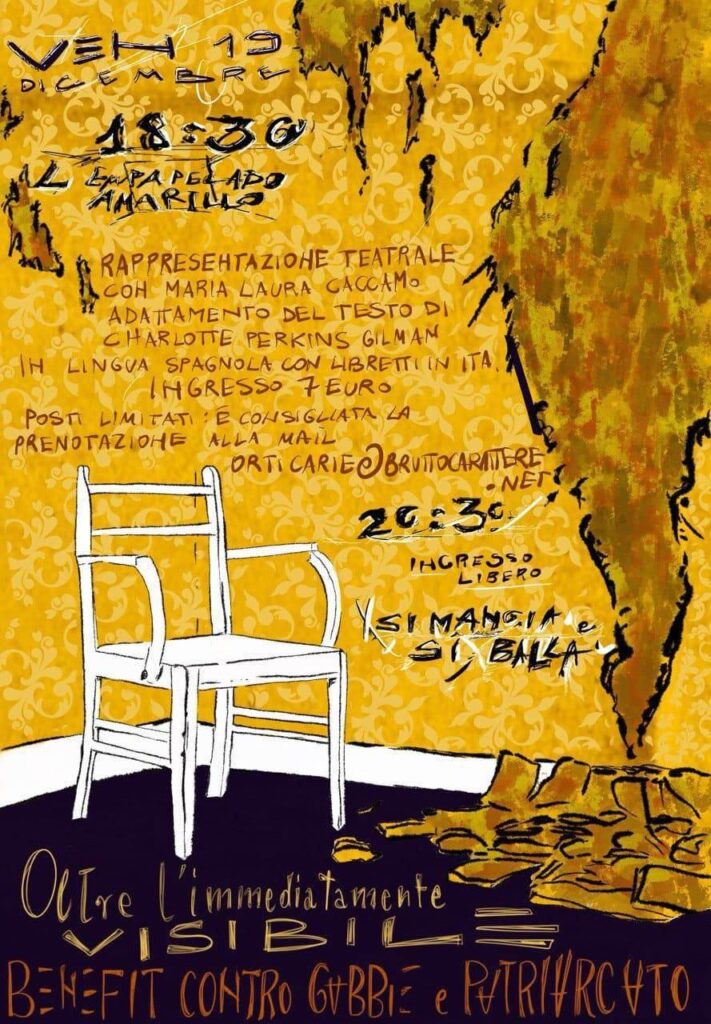 VEN 19
DICEMBRE
18:30
IL EMPAPELADO
AMARILLO
RAPPRESENTAZIONE TEATRALE
CON MARIA LAURA CACCAMO
ADATTAMENTO DEL TESTO DI
CHARLOTTE PERKINS GILMAN
IN LINGUA SPAGNOLA CON LIBRETTI IN ITA.
INGRESSO 7 EURO
POSTI LIMITATI: È CONSIGLIATA LA
PRENOTAZIONE ALLA MAIL
ORTICARIE@BRUTTOCARATTERE
.NET
20:30
INGRESSO
LIBERO
SI MANGIA e
SI BALLA
Oltre l'immediatamente
VISIBILE
BENEFIT CONTRO GABBIE e PATRIARCATO